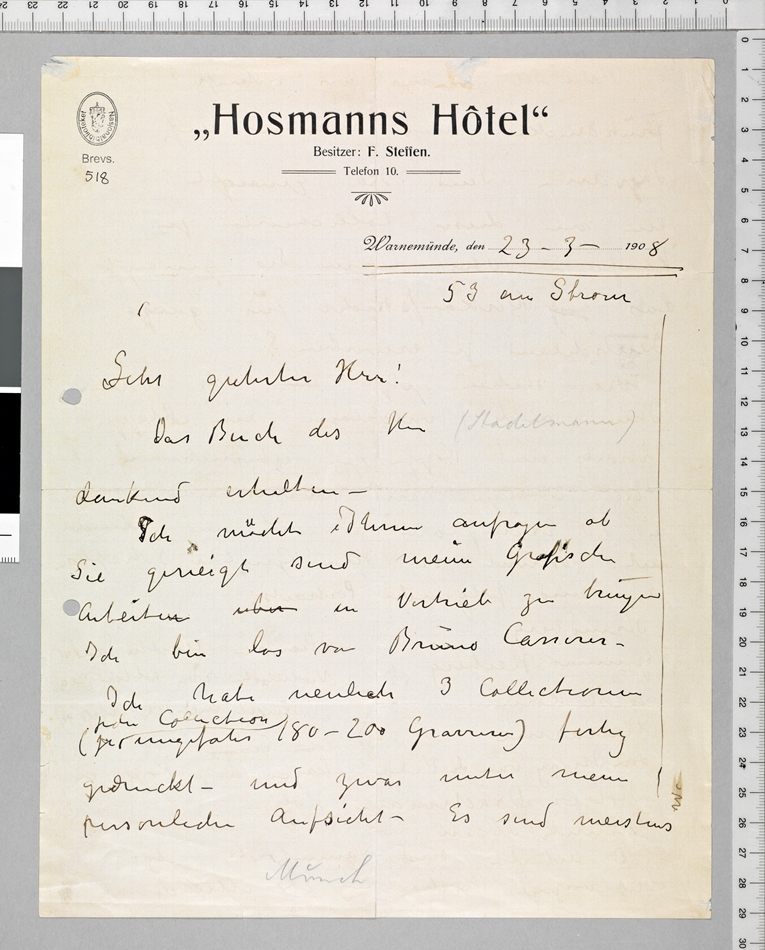 „Hosmanns Hôtel“
Besitzer: F. Steffen.
Telefon 10.
Nasjonalbiblioteket
Brevs.
518
Warnemünde, den 23 – 3 – 1908
53 am Strom
Sehr geehrter Herr!
Das Buch des Herrn (Stadelmann)
dankend erhalten –
Ich möchte Ihnen anfragen ob
Sie geneigt sind meine Grafischen
Arbeiten uber in Vertrieb zu bringen
Ich bin los von Bruno Cassirer –
Ich habe neulich 3 Collectionen
jede Collection
(ungefähr 180 – 200 Gravuren) fertig
gedruckt – und zwar unter meine
personliche Aufsicht – Es sind meistens
Munch